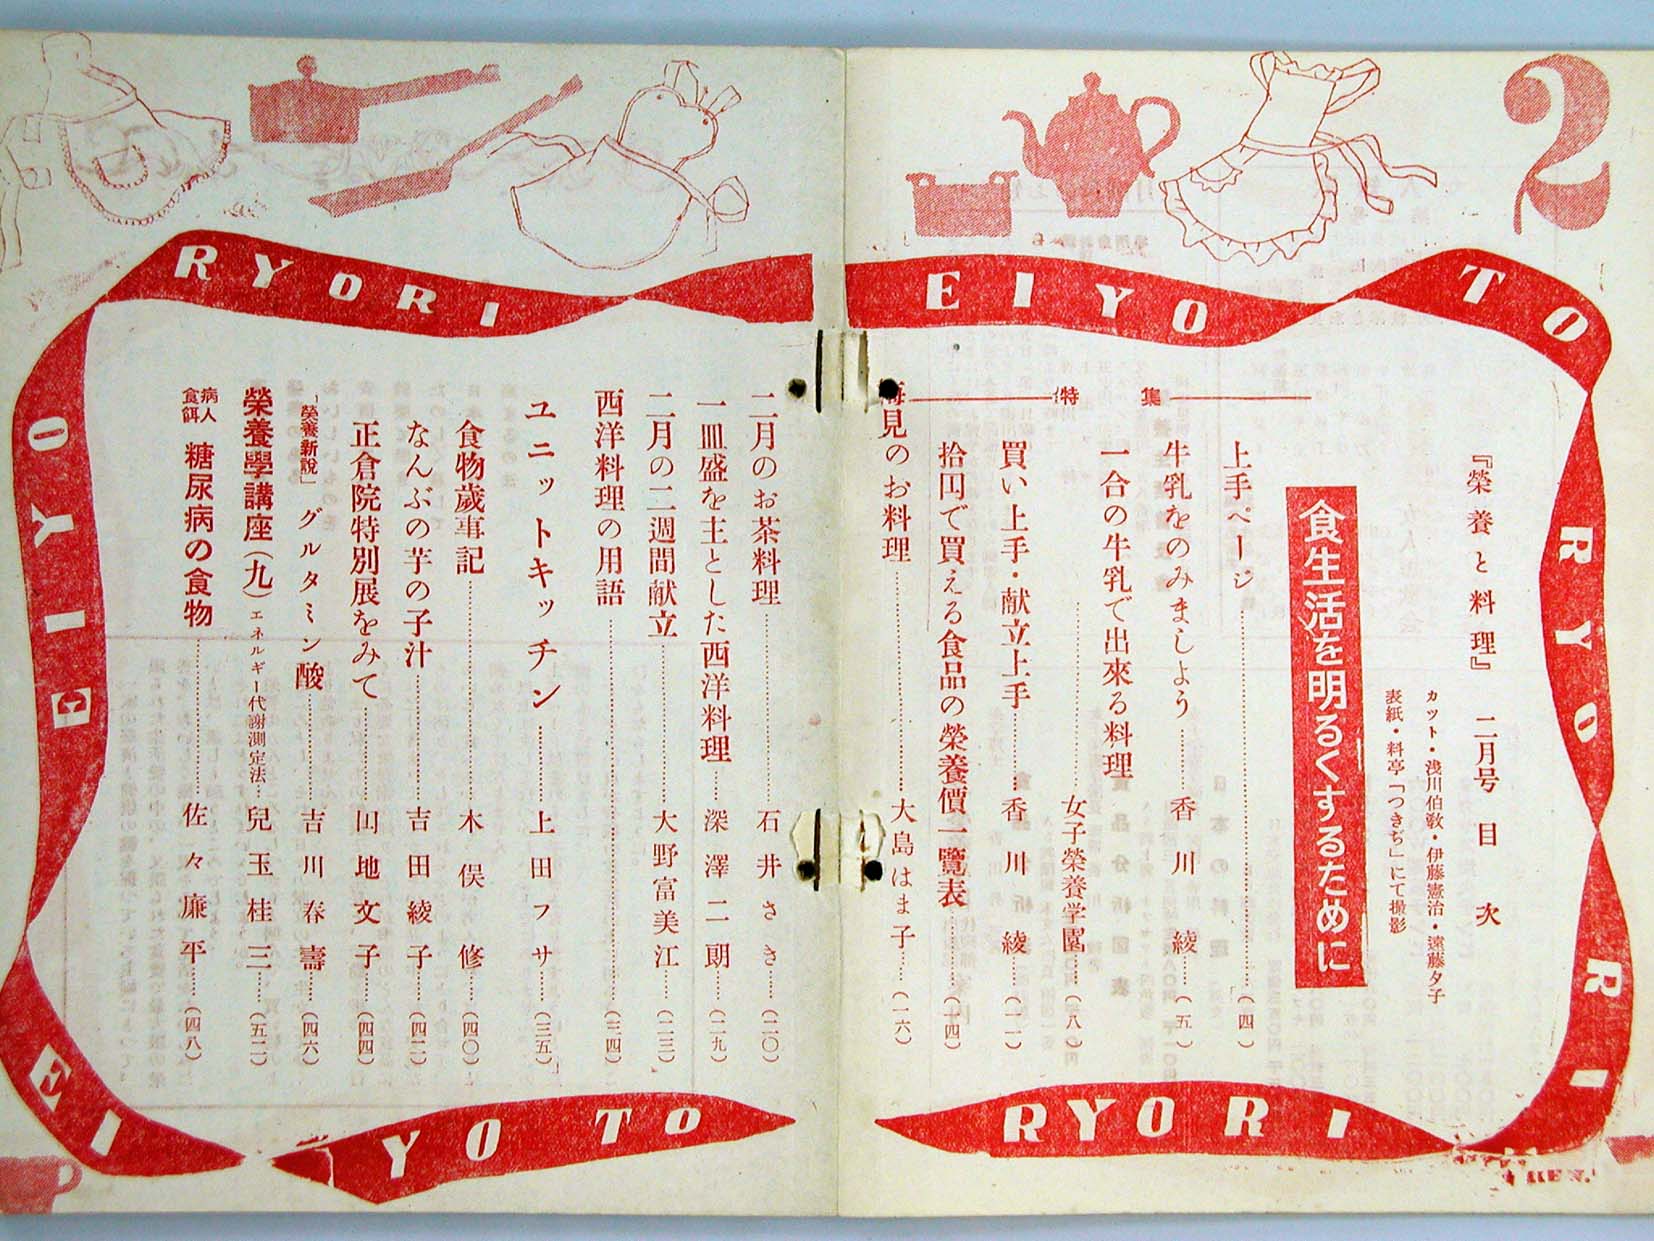 2
EIYO TO RYORI
RYORI
EIYO
EIYO TO
RYORI
『榮養と料理』 二月号 目次
カット・浅川伯敎・伊藤憲治・遠藤夕子
表紙・料亭「つきぢ」にて撮影
特集
食生活を明るくするために
上手ページ……(四)
牛乳をのみましよう……香川綾……(五)
一合の牛乳で出來る料理……女子榮養学園……(八)
買い上手・献立上手……香川綾……(一一)
拾円で買える食品の榮養價一覽表……(一四)
海見のお料理……大島はま子……(一六)
二月のお茶料理……石井さき……(二〇)
一皿盛を主とした西洋料理……深澤二朗……(二九)
二月の二週間献立……大野富美江……(二三)
西洋料理の用語……(三四)
ユニットキッチン……上田フサ……(三五)
食物歲事記……木俣修……(四〇)
なんぶの芋の子汁……吉田綾子……(四二)
正倉院特別展をみて……円地文子……(四四)
「榮養新說」グルタミン酸……吉川春壽……(四六)
榮養學講座(九)エネルギー代謝測定法…兒玉桂三……(五二)
病人食餌 糖尿病の食物……佐々廉平……(四八)